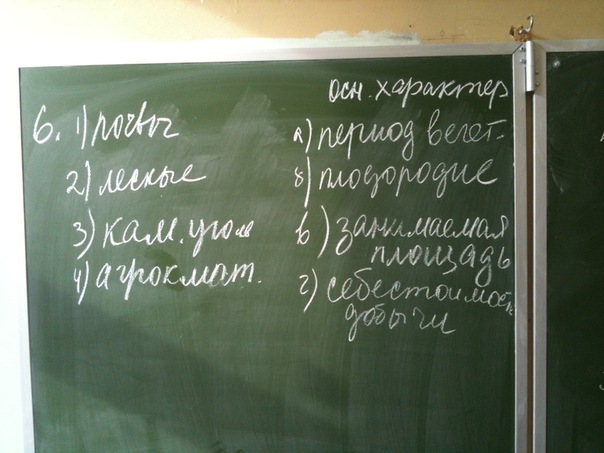 осн. характер
6. 1) почвы
2) лесные
3) кам. уголь
4) агроклмат.
а) период вегет.
б) плодородие
в) занимаемая
площадь
г) себестоимость
добычи